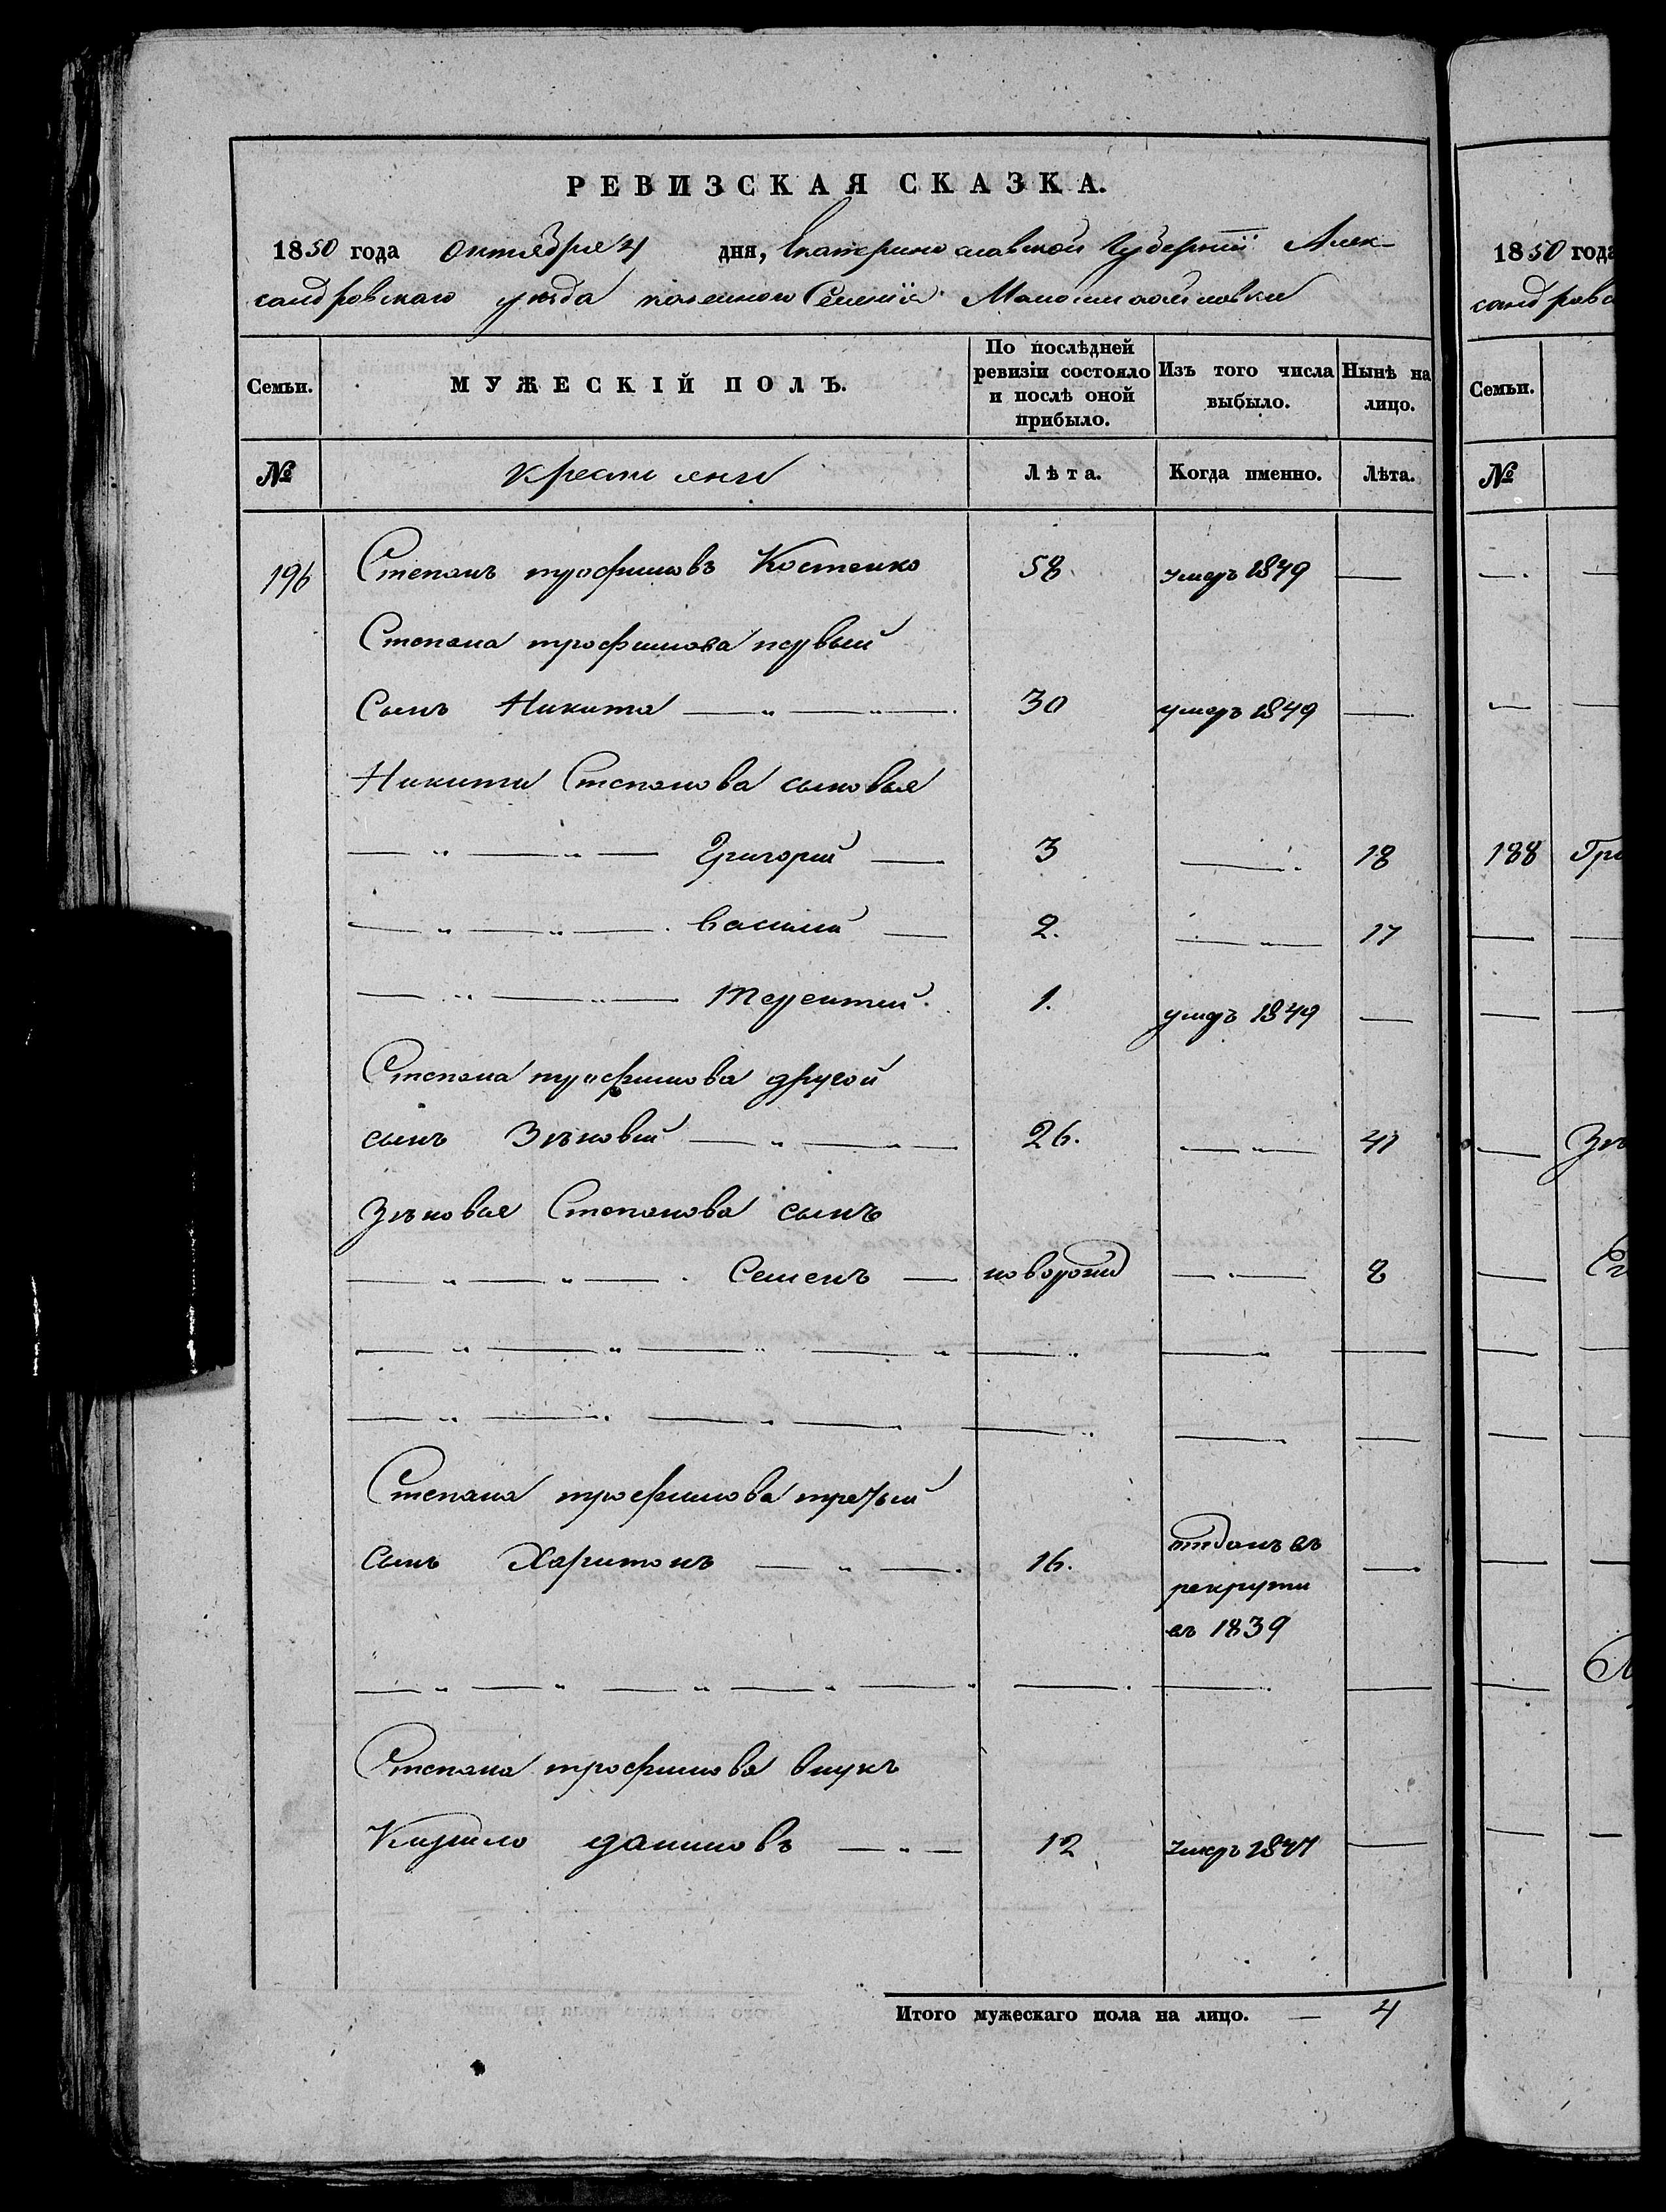 РЕВИЗСКАЯ СКАЗКА.
1850 года октября 4 дня, Екатеринославской Губернiи Алек-
сандровскаго уезда казенного Селенiя Маломихайловки
Семьи. МУЖЕСКIЙ ПОЛЪ. По послѣдней ревизiи состояло и послѣ оной прибыло. Изъ того числа выбыло. Нынѣ на лицо.
№ крестьяни Лѣта. Когда именно. Лѣта.
196 Степанъ трофимовъ Костенко 58. умеръ 1849 —
Степана трофимова первый
Сынъ Никита — „ — „ — 30 умеръ 1849 —
Никиты Степанова сыновья
— „ — „ — Григорий — 3 — 18
— „ — „ — Василий — 2. — „ — 17
— „ — „ — Терентий. 1. умеръ 1849 —
Степана трофимова другой
сынъ Зѣновий — „ — „ — 26. — „ — 41
Зѣновья Степанова сынъ
— „ — „ — Семенъ — новорожд — „ — 8
— „ — „ — „ — „ — „ — „ —
— „ — „ — „ — — „ — —
Степана трофимова третьи
сынъ Харитонъ — „ — 16. отданъ въ —
рекрути
въ 1839
— „ — „ — „ — „ — „ — — —
Степана трофимова внукъ
Кирило даниловъ — „ — 12 умеръ 1847 —
Итого мужескаго пола на лицо. — 4
1850 года
сандровс
Семьи.
№
188 Гри
Зѣ